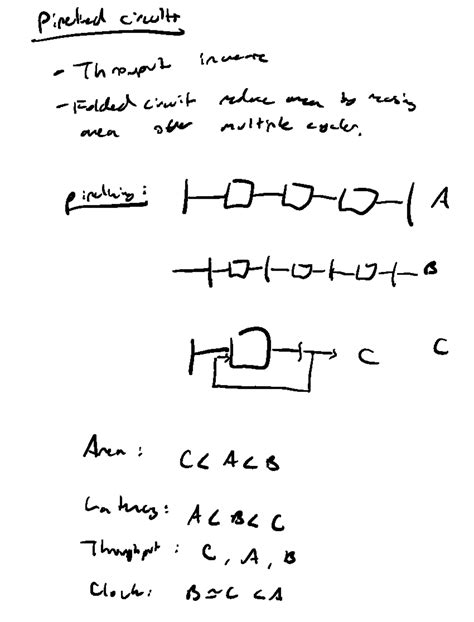 Pipelined circuits
- Throughput increase
- Folded circuit reduce area by reusing
area over multiple cycles.
pipelining:
A
B
C
C
Area: C < A < B
Latency: A < B < C
Throughput: C, A, B
Clock: B ≃ C < A